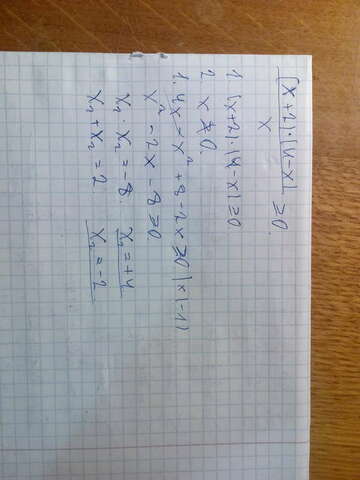 (x+2)·(4-x)
x ≥0.
1. (x+2)·(4-x)≥0
2 x≠0.
1. 4x-x²+8-2x≥0 |×(-1)
x²-2x-8≥0
x₁·x₂=-8. x₁=+4
x₁+x₂=2 x₂=-2